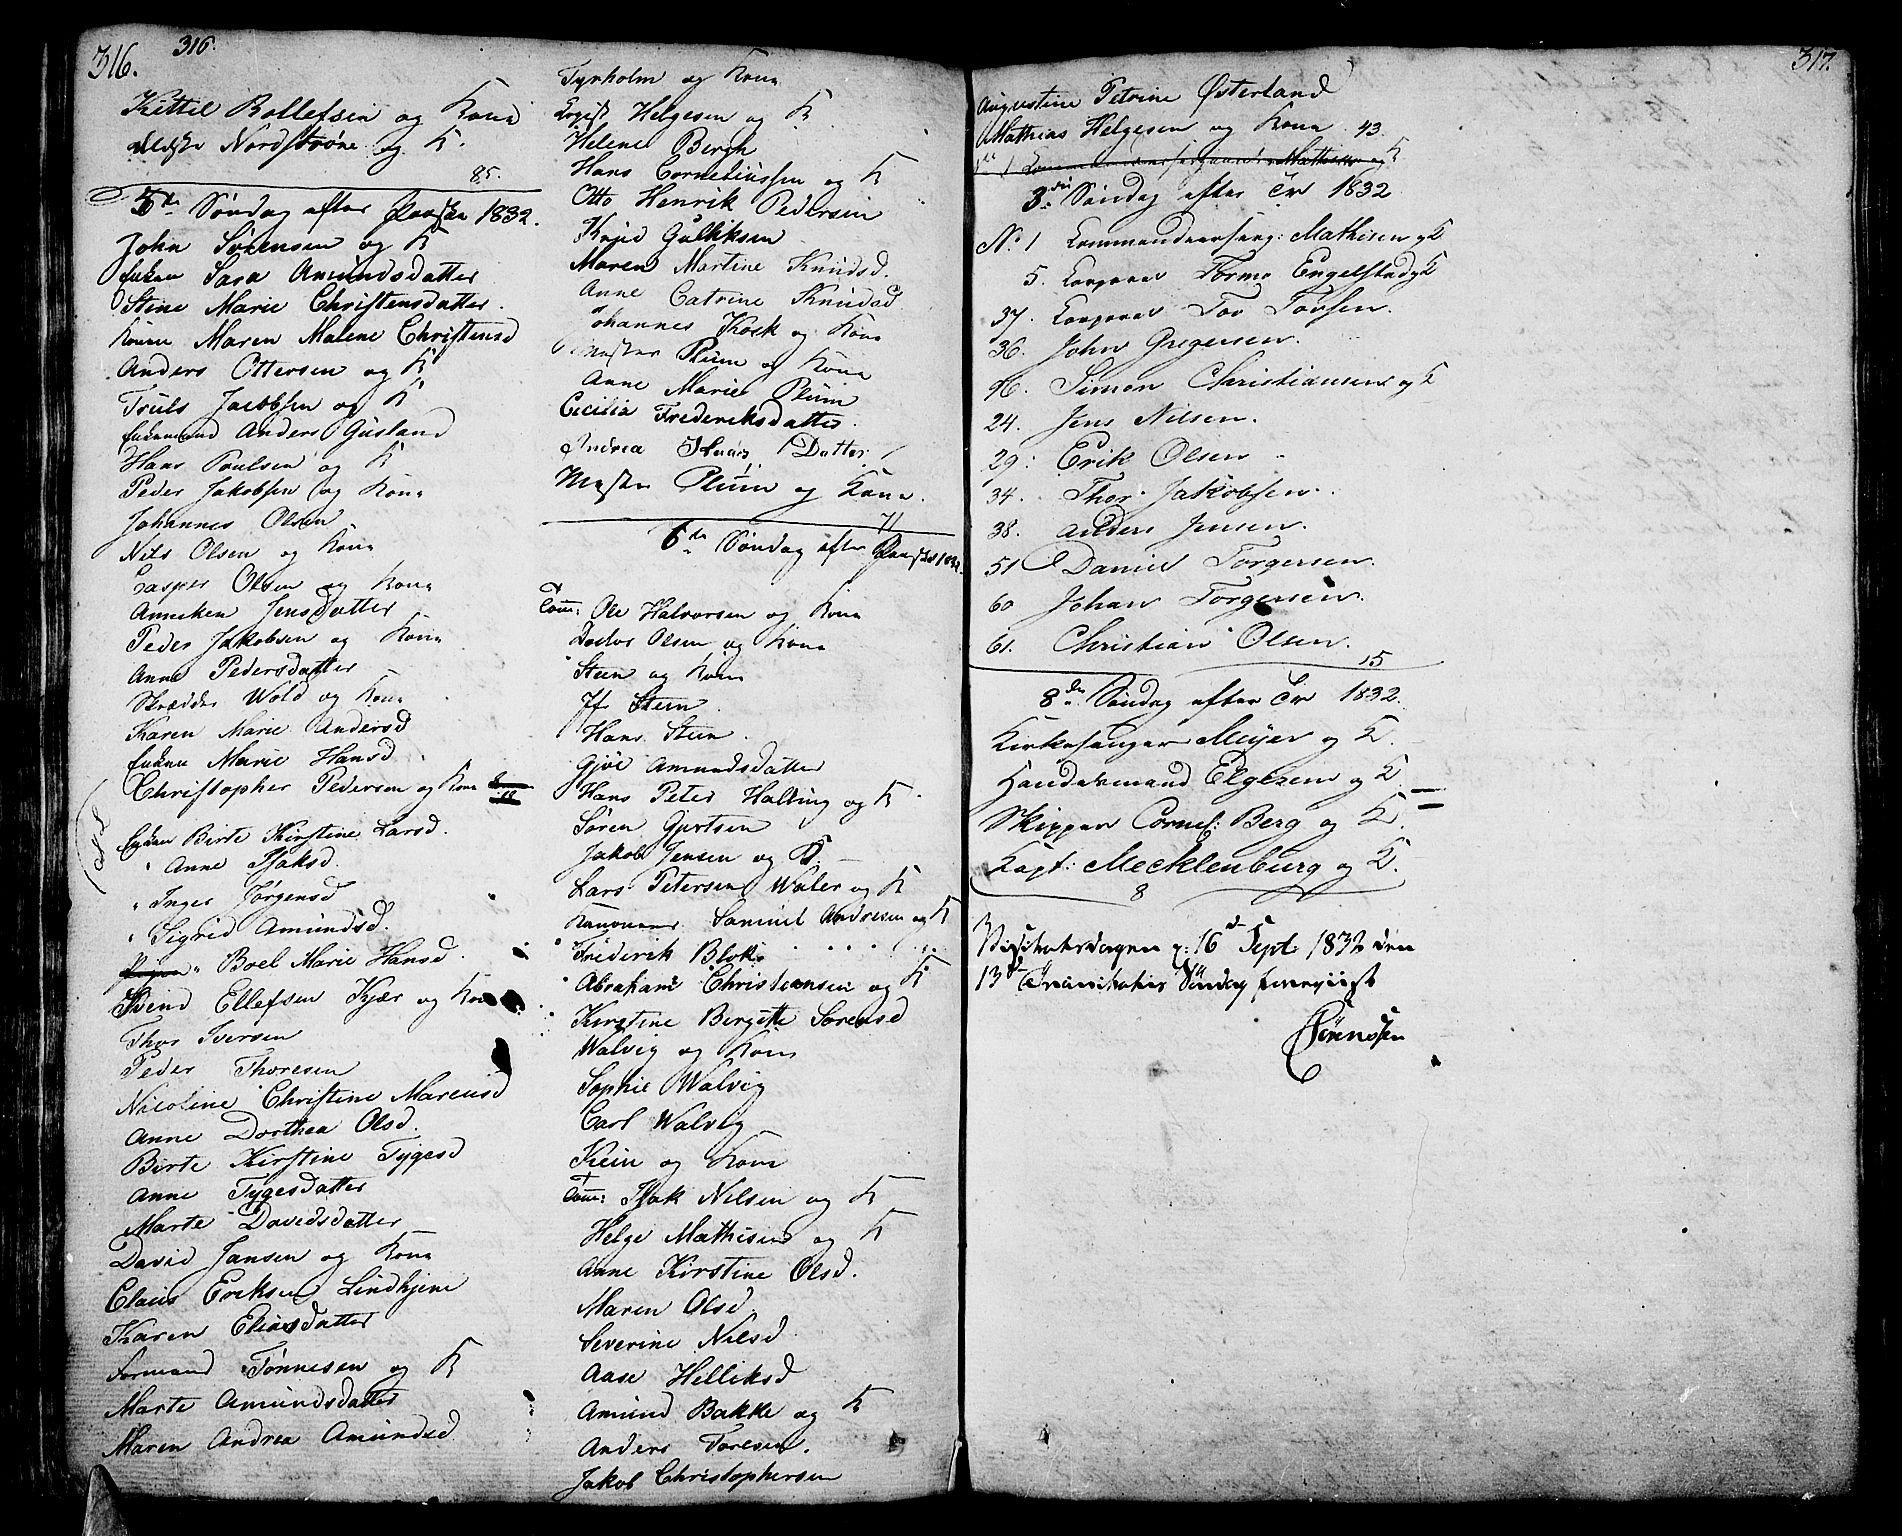 316. 316.
Kittel Rollefsen og Kone
Madske Nordstrøne og K.
85.
5te Søndag efter Paaske 1832.
John Sørensen og K
Enken Sara Amundsdatter
Stine Marie Christensdatter.
Konen Maren Malene Christensd
Anders Ottersen og K
Truls Jacobsen og K
Enkemand Anders Gusland
Hans Poulsen og K
Peder Jakobsen og Kone
Johannes Olsen
Nils Olsen og Kone
Casper Olsen og Kone
Anneken Jensdatter
Peder Jakobsen og Kone
Anne Pedersdatter
Skrædder Wold og Kone
Karen Marie Andersd
Enken Marie Hansd
Christopher Pedersen og Kone
Enken Birte Kirstine Larsd.
" Anne Isaksd.
" Inger Jørgensd
" Sigrid Amundsd.
" Boel Marie Hansd.
Svend Ellefsen Kjær og Kone
Thor Iversen
Peder Thoresen
Nicoline Christine Marcusd
Anne Dorthea Olsd.
Birte Kirstine Tygesd
Anne Tygesdatter
Marte Davidsdatter
David Jansen og Kone
Claus Eriksen Lindhjem
Karen Eliasdatter
Formand Tønnesen og K
Marte Amundsdatter
Maren Andrea Amundsd
Tyrholm og Kone
Helgesen og K
Helene Bergh
Hans Corneliussen og K
Otto Henrik Pedersen
Knud Gulliksen
Maren Martine Knudsd.
Anne Catrine Knudsd
Johannes Kock og Kone
Master Plum og Kone
Anne Marie Plum
Cecilia Frederiksdatter.
Andrea Datter
Master Plum og Kone.
71
6te Søndag efter Paaske 1832.
Com: Ole Halvorsen og Kone
Doctor Olsen og Kone
Steen og Kone
Jf Steen.
Hans Steen.
Gjøe Amundsdatter
Hans Peter Halling og K.
Søren Gjertsen
Jakob Jensen og K.
Lars Petersen Waler og K
Samuel Andresen og K
Frederik Blok
Abraham Christiansen og K
Kirstine Bergitte Sørensd
Walvig og Kone
Sophie Walvig
Carl Walvig
Klein og Kone
Com: Isak Nilsen og K
Helge Mathisen og K
Anne Kirstine Olsd.
Maren Olsd.
Severine Nilsd.
Aase Helliksd
Amund Bakke og K
Anders Toresen.
Jakob Christophersen
317.
Augustine Petrine Østerland
Mathias Helgesen og Kone 43.
3die Søndag efter Tr 1832
No. 1 Kommandeersersg: Mathisen og K
5. Korporal Tormo Engelstad og K
37. Korporal Tor Torsen.
36. John Gregersen.
46. Simon Christiansen og K
24. Jens Nilsen.
29. Erik Olsen
34. Thor Jakobsen.
38. Anders Jensen.
51 Daniel Torgersen.
60 Johan Torgersen.
61. Christian Olsen.
15
8de Søndag efter Tr 1832.
Kirkesanger Meyer og K.
Handelsmand Elgesem og K
Skipper Cornel: Berg og K.
Kapt: Mecklenburg og K.
8
Visitatsdagen p: 16de Sept: 1832 den
13de Trinitatis Søndag foreviist
Sørenssen